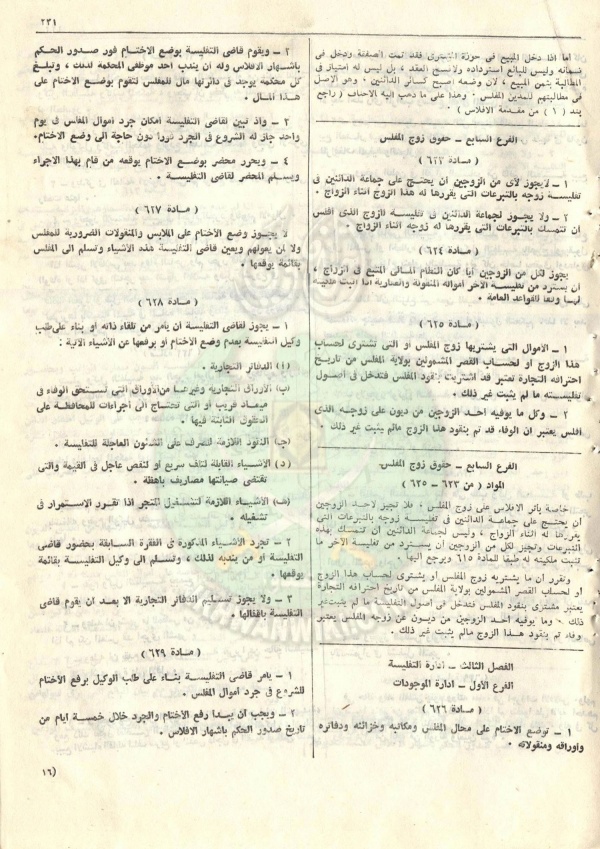 ٢٣١
اما اذا دخل المبيع فى حوزة المشترى فقد تمت الصفقة ودخل فى
ضمانه وليس للبائع استرداده ولا فسخ العقد ، بل ليس له امتياز فى
المطالبة بثمن المبيع ، لان وضعه اصبح كسائر الدائنين ، وهو الاصل
فى مطالبتهم للمدين المفلس . وهذا على ما ذهب اليه الاحناف ( راجع
بند ( ١ ) من مقدمة الافلاس )
الفرع السابع – حقوق زوج المفلس
( مــادة ٦٢٣ )
١ – لايجوز لأى من الزوجين أن يحتج على جماعة الدائنين فى
تفليسة زوجه بالتبرعات التى يقررها له هذا الزوج أثناء الزواج .
٢ – ولا يجوز لجماعة الدائنين فى تفليسة الزوج الذى أفلس
ان تتمسك بالتبرعات التى يقررها له زوجه أثناء الزواج .
( مــادة ٦٢٤ )
يجوز لكل من الزوجين أيا كان النظام المالى المتبع فى الزواج ،
أن يسترد من تفليسة الآخر أمواله المنقولة والعقارية اذا أثبت ملكيته
لهـا وفقا للقواعد العامة .
( مــادة ٦٢٥ )
١ – الأموال التى يشتريها زوج المفلس أو التى تشترى لحساب
هذا الزوج أو لحساب القصر المشمولين بولاية المفلس من تاريخ
احترافه التجارة تعتبر قد اشتريت بنقود المفلس فتدخل فى أصول
تفليسته ما لم يثبت غير ذلك .
٢ – وكل ما يوفيه أحد الزوجين من ديون على زوجه الذى
أفلس يعتبر أن الوفاء قد تم بنقود هذا الزوج مالم يثبت غير ذلك .
الفرع السابع – حقوق زوج المفلس
المواد ( من ٦٢٣ – ٦٢٥ )
خاصة بأثر الافلاس على زوج المفلس ، فلا تجيز لاحد الزوجين
أن يحتج على جماعة الدائنين فى تفليسة زوجه بالتبرعات التى
يقررها له أثناء الزواج ، وليس لجماعة الدائنين أن تتمسك بهذه
التبرعات وتجيز لكل من الزوجين أن يسترد من تفليسة الآخر ما
تثبت ملكيته له طبقا للمادة ٦١٥ ويرجع اليها .
وتقرر أن ما يشتريه زوج المفلس أو يشترى لحساب هذا الزوج
أو لحساب القصر المشمولين بولاية المفلس من تاريخ احترافه التجارة
يعتبر مشترى بنقود المفلس فتدخل فى أصول التفليسة ما لم يثبت غير
ذلك . وما يوفيه أحد الزوجين من ديون عن زوجه المفلس يعتبر
وفاء تم بنقود هذا الزوج مالم يثبت غير ذلك .
الفصل الثالث – ادارة التفليسة
الفرع الأول – ادارة الموجودات
( مــادة ٦٢٦ )
١ – توضع الأختام على محال المفلس ومكاتبه وخزائنه ودفاتره
وأوراقه ومنقولاته .
٢ – ويقوم قاضى التفليسة بوضع الأختام فور صدور الحكم
باشهار الافلاس وله أن يندب أحد موظفى المحكمة لذلك ، وتبلغ
كل محكمة يوجد فى دائرتها مال للمفلس لتقوم بوضع الأختام على
هذا المـال .
٣ – واذا تبين لقاضى التفليسة امكان جرد أموال المفلس فى يوم
واحد جاز له الشروع فى الجرد فورا دون حاجة الى وضع الأختام.
٤ – ويحرر محضر بوضع الأختام يوقعه من قام بهذا الاجراء
ويسلم المحضر لقاضى التفليسة .
( مــادة ٦٢٧ )
لا يجوز وضع الأختام على الملابس والمنقولات الضرورية للمفلس
ولا لمن يعولهم ويعين قاضى التفليسة هذه الأشياء وتسلم الى المفلس
بقائمة يوقعها .
( مــادة ٦٢٨ )
١ – يجوز لقاضى التفليسة أن يأمر من تلقاء ذاته أو بناء على طلب
وكيل التفليسة بعدم وضع الأختام أو برفعها عن الأشياء الآتية :
(أ) الدفاتر التجارية .
(ب) الأوراق التجارية وغيرها من الأوراق التى تستحق الوفاء فى
ميعاد قريب أو التى تحتاج الى اجراءات للمحافظة على
الحقوق الثابتة فيها .
(جـ) النقود اللازمة للصرف على الشئون العاجلة للتفليسة .
(د) الأشياء القابلة لتلف سريع أو لنقص عاجل فى القيمة والتى
تقتضى صيانتها مصاريف باهظة .
(هـ) الأشياء اللازمة لتشغيل المتجر اذا تقرر الاستمرار فى
تشغيله .
٢ – تجرد الأشياء المذكورة فى الفقرة السابقة بحضور قاضى
التفليسة أو من يندبه لذلك ، وتسلم الى وكيل التفليسة بقائمة
يوقعها .
٣ – ولا يجوز تسليم الدفاتر التجارية الا بعد أن يقوم قاضى
التفليسة باقفالها .
( مــادة ٦٢٩ )
١ – يأمر قاضى التفليسة بناء على طلب الوكيل برفع الأختام
للشروع فى جرد أموال المفلس .
٢ – ويجب أن يبدأ رفع الأختام والجرد خلال خمسة أيام من
تاريخ صدور الحكم باشهار الافلاس .
(١٦